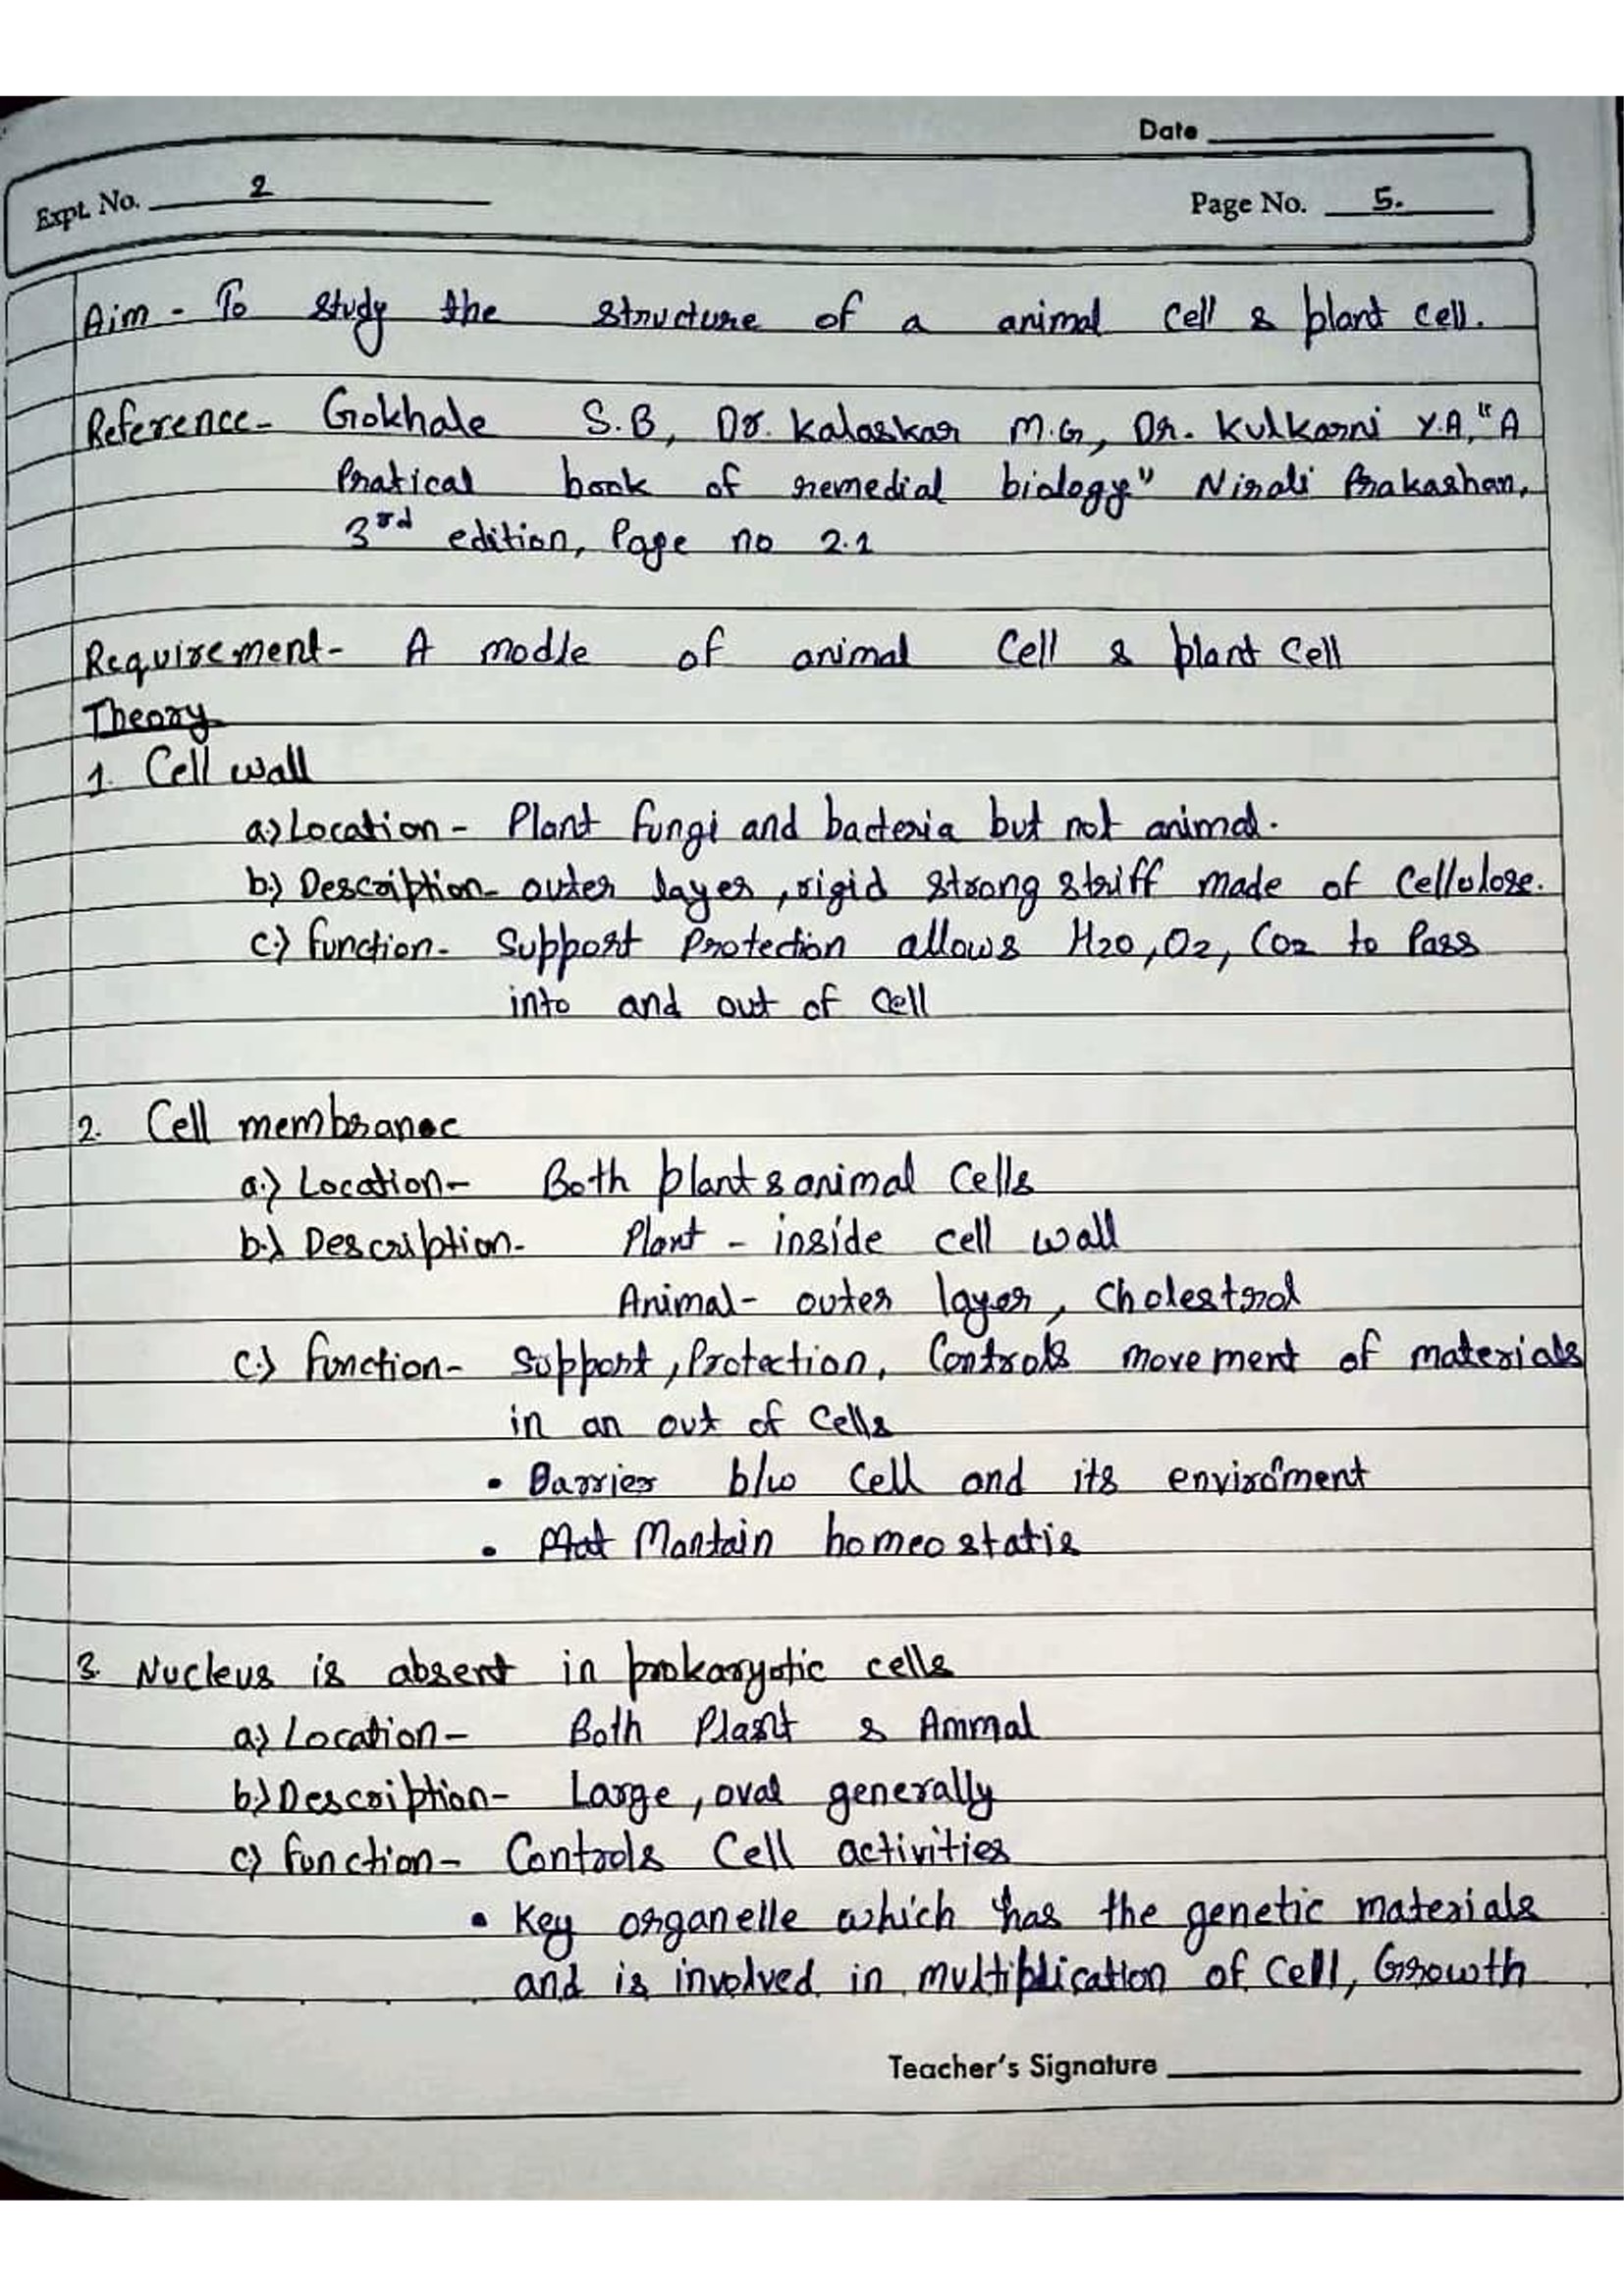 Date
Expt. No. 2
Page No. 5.
Aim - To study the structure of a animal cell & plant cell.
Reference- Gokhale S.B, Dr. Kalaskar M.G, Dr. Kulkarni Y.A, "A
Pratical book of remedial biology" Nirali Prakashan,
3rd edition, Page no 2.1
Requirement- A modle of animal Cell & plant Cell
Theory
1. Cell wall
a.) Location - Plant fungi and bacteria but not animal.
b.) Description- outer layer, rigid strong striff made of cellulose.
c.) function- Support Protection allows H2O, O2, CO2 to Pass
into and out of Cell
2. Cell membranec
a.) Location- Both plant & animal Cells
b.) Description- Plant - inside cell wall
Animal- outer layer, Cholestrol
c.) function- Support, Protection, Controls movement of materials
in an out of Cells
• Barrier b/w Cell and its enviroment
• Mantain homeostatis
3. Nucleus is absent in prokaryotic cells
a.) Location- Both Plant & Animal
b.) Description- Large, oval generally
c) function- Controls Cell activities
• Key organelle which has the genetic materials
and is involved in multiplication of Cell, Growth
Teacher's Signature